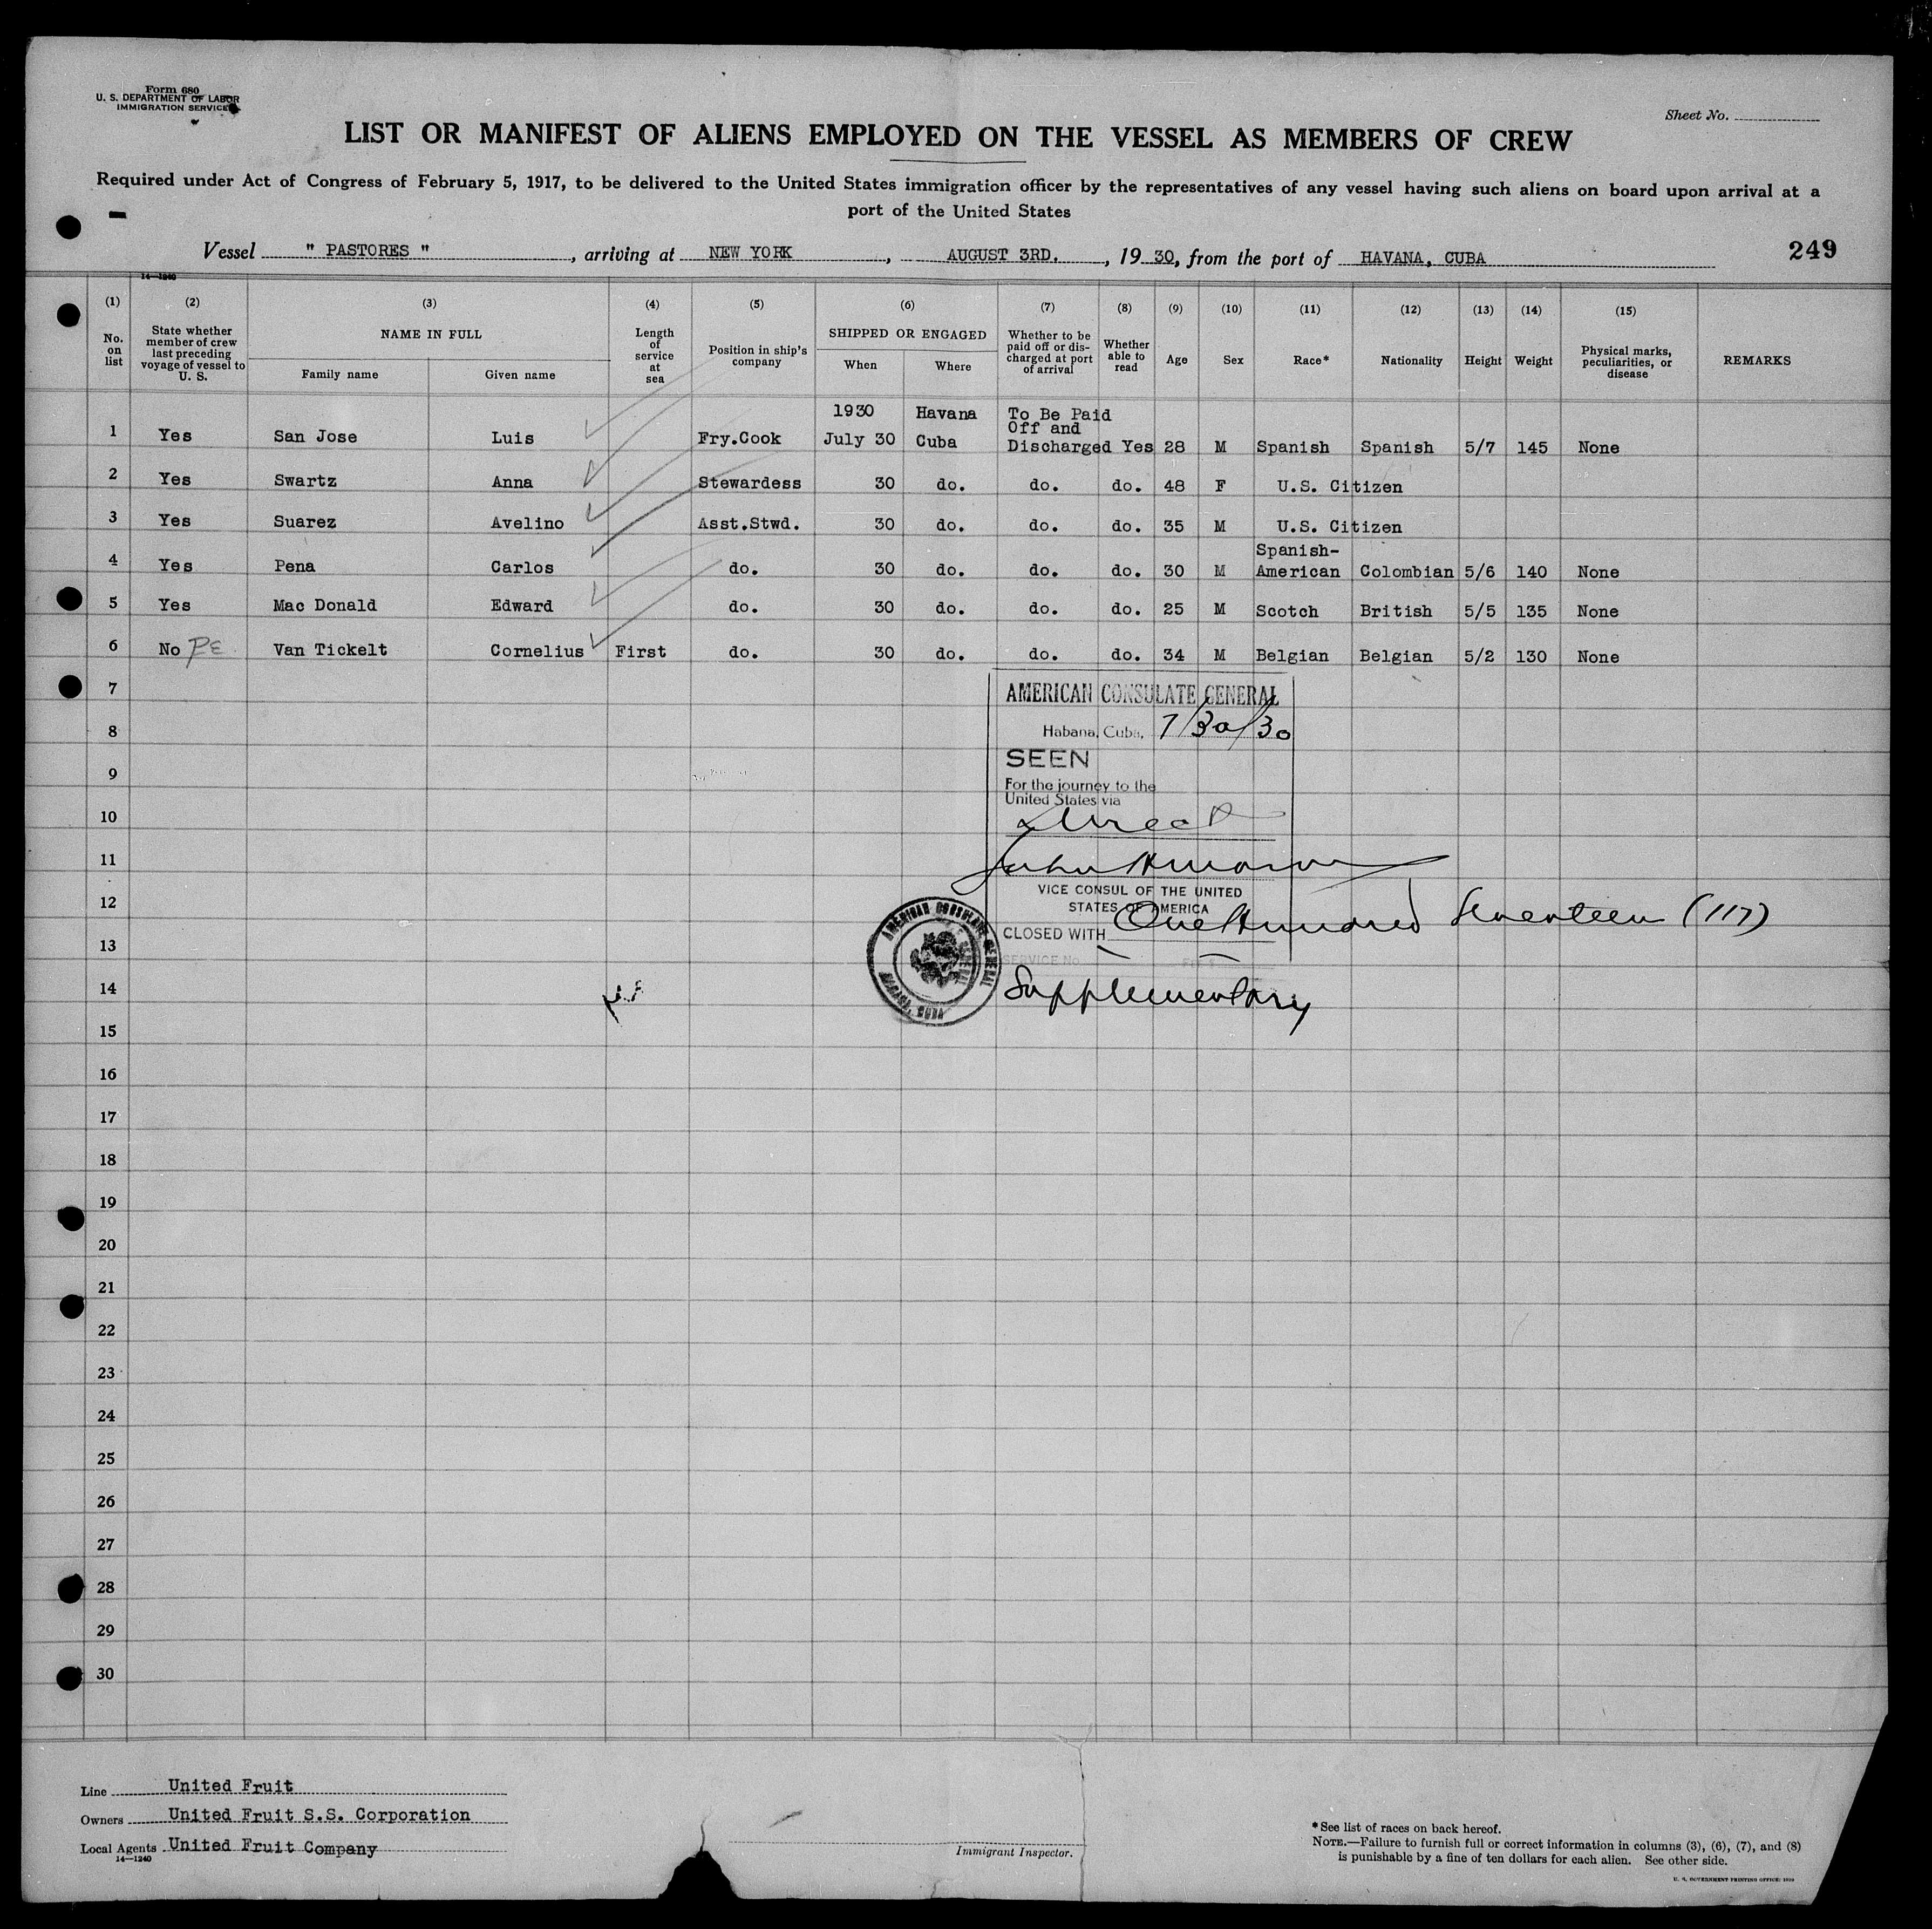 Form 680
U. S. DEPARTMENT OF LABOR
IMMIGRATION SERVICE
Sheet No.
LIST OR MANIFEST OF ALIENS EMPLOYED ON THE VESSEL AS MEMBERS OF CREW
Required under Act of Congress of February 5, 1917, to be delivered to the United States immigration officer by the representatives of any vessel having such aliens on board upon arrival at a
port of the United States
Vessel " PASTORES ", arriving at NEW YORK, AUGUST 3RD., 19 30, from the port of HAVANA, CUBA
249
14—1240
(1) (2) (3) (4) (5) (6) (7) (8) (9) (10) (11) (12) (13) (14) (15)
No. on list
State whether member of crew last preceding voyage of vessel to U. S.
NAME IN FULL
Family name Given name
Length of service at sea
Position in ship's company
SHIPPED OR ENGAGED
When Where
Whether to be paid off or discharged at port of arrival
Whether able to read
Age Sex Race* Nationality Height Weight
Physical marks, peculiarities, or disease
REMARKS
1930 Havana To Be Paid
Off and
1 Yes San Jose Luis Fry.Cook July 30 Cuba Discharged Yes 28 M Spanish Spanish 5/7 145 None
2 Yes Swartz Anna Stewardess 30 do. do. do. 48 F U.S. Citizen
3 Yes Suarez Avelino Asst.Stwd. 30 do. do. do. 35 M U.S. Citizen
Spanish-
4 Yes Pena Carlos do. 30 do. do. do. 30 M American Colombian 5/6 140 None
5 Yes Mac Donald Edward do. 30 do. do. do. 25 M Scotch British 5/5 135 None
6 No PE Van Tickelt Cornelius First do. 30 do. do. do. 34 M Belgian Belgian 5/2 130 None
7
AMERICAN CONSULATE GENERAL
8
Habana, Cuba, 7/30/30
SEEN
9
For the journey to the
United States via
10
Direct
11
VICE CONSUL OF THE UNITED
12
STATES OF AMERICA
CLOSED WITH One Hundred Seventeen (117)
13
SERVICE No.
AMERICAN CONSULATE GENERAL
HABANA, CUBA
14
Supplementary
15
16
17
18
19
20
21
22
23
24
25
26
27
28
29
30
Line United Fruit
Owners United Fruit S.S. Corporation
Local Agents United Fruit Company
14—1240
Immigrant Inspector.
*See list of races on back hereof.
NOTE.—Failure to furnish full or correct information in columns (3), (6), (7), and (8)
is punishable by a fine of ten dollars for each alien. See other side.